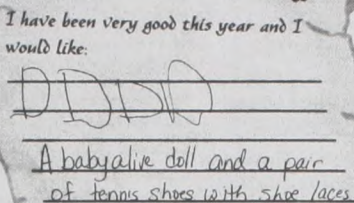 I have been very good this year and I
would like:
D D D D
A baby alive doll and a pair
of tennis shoes with shoe laces